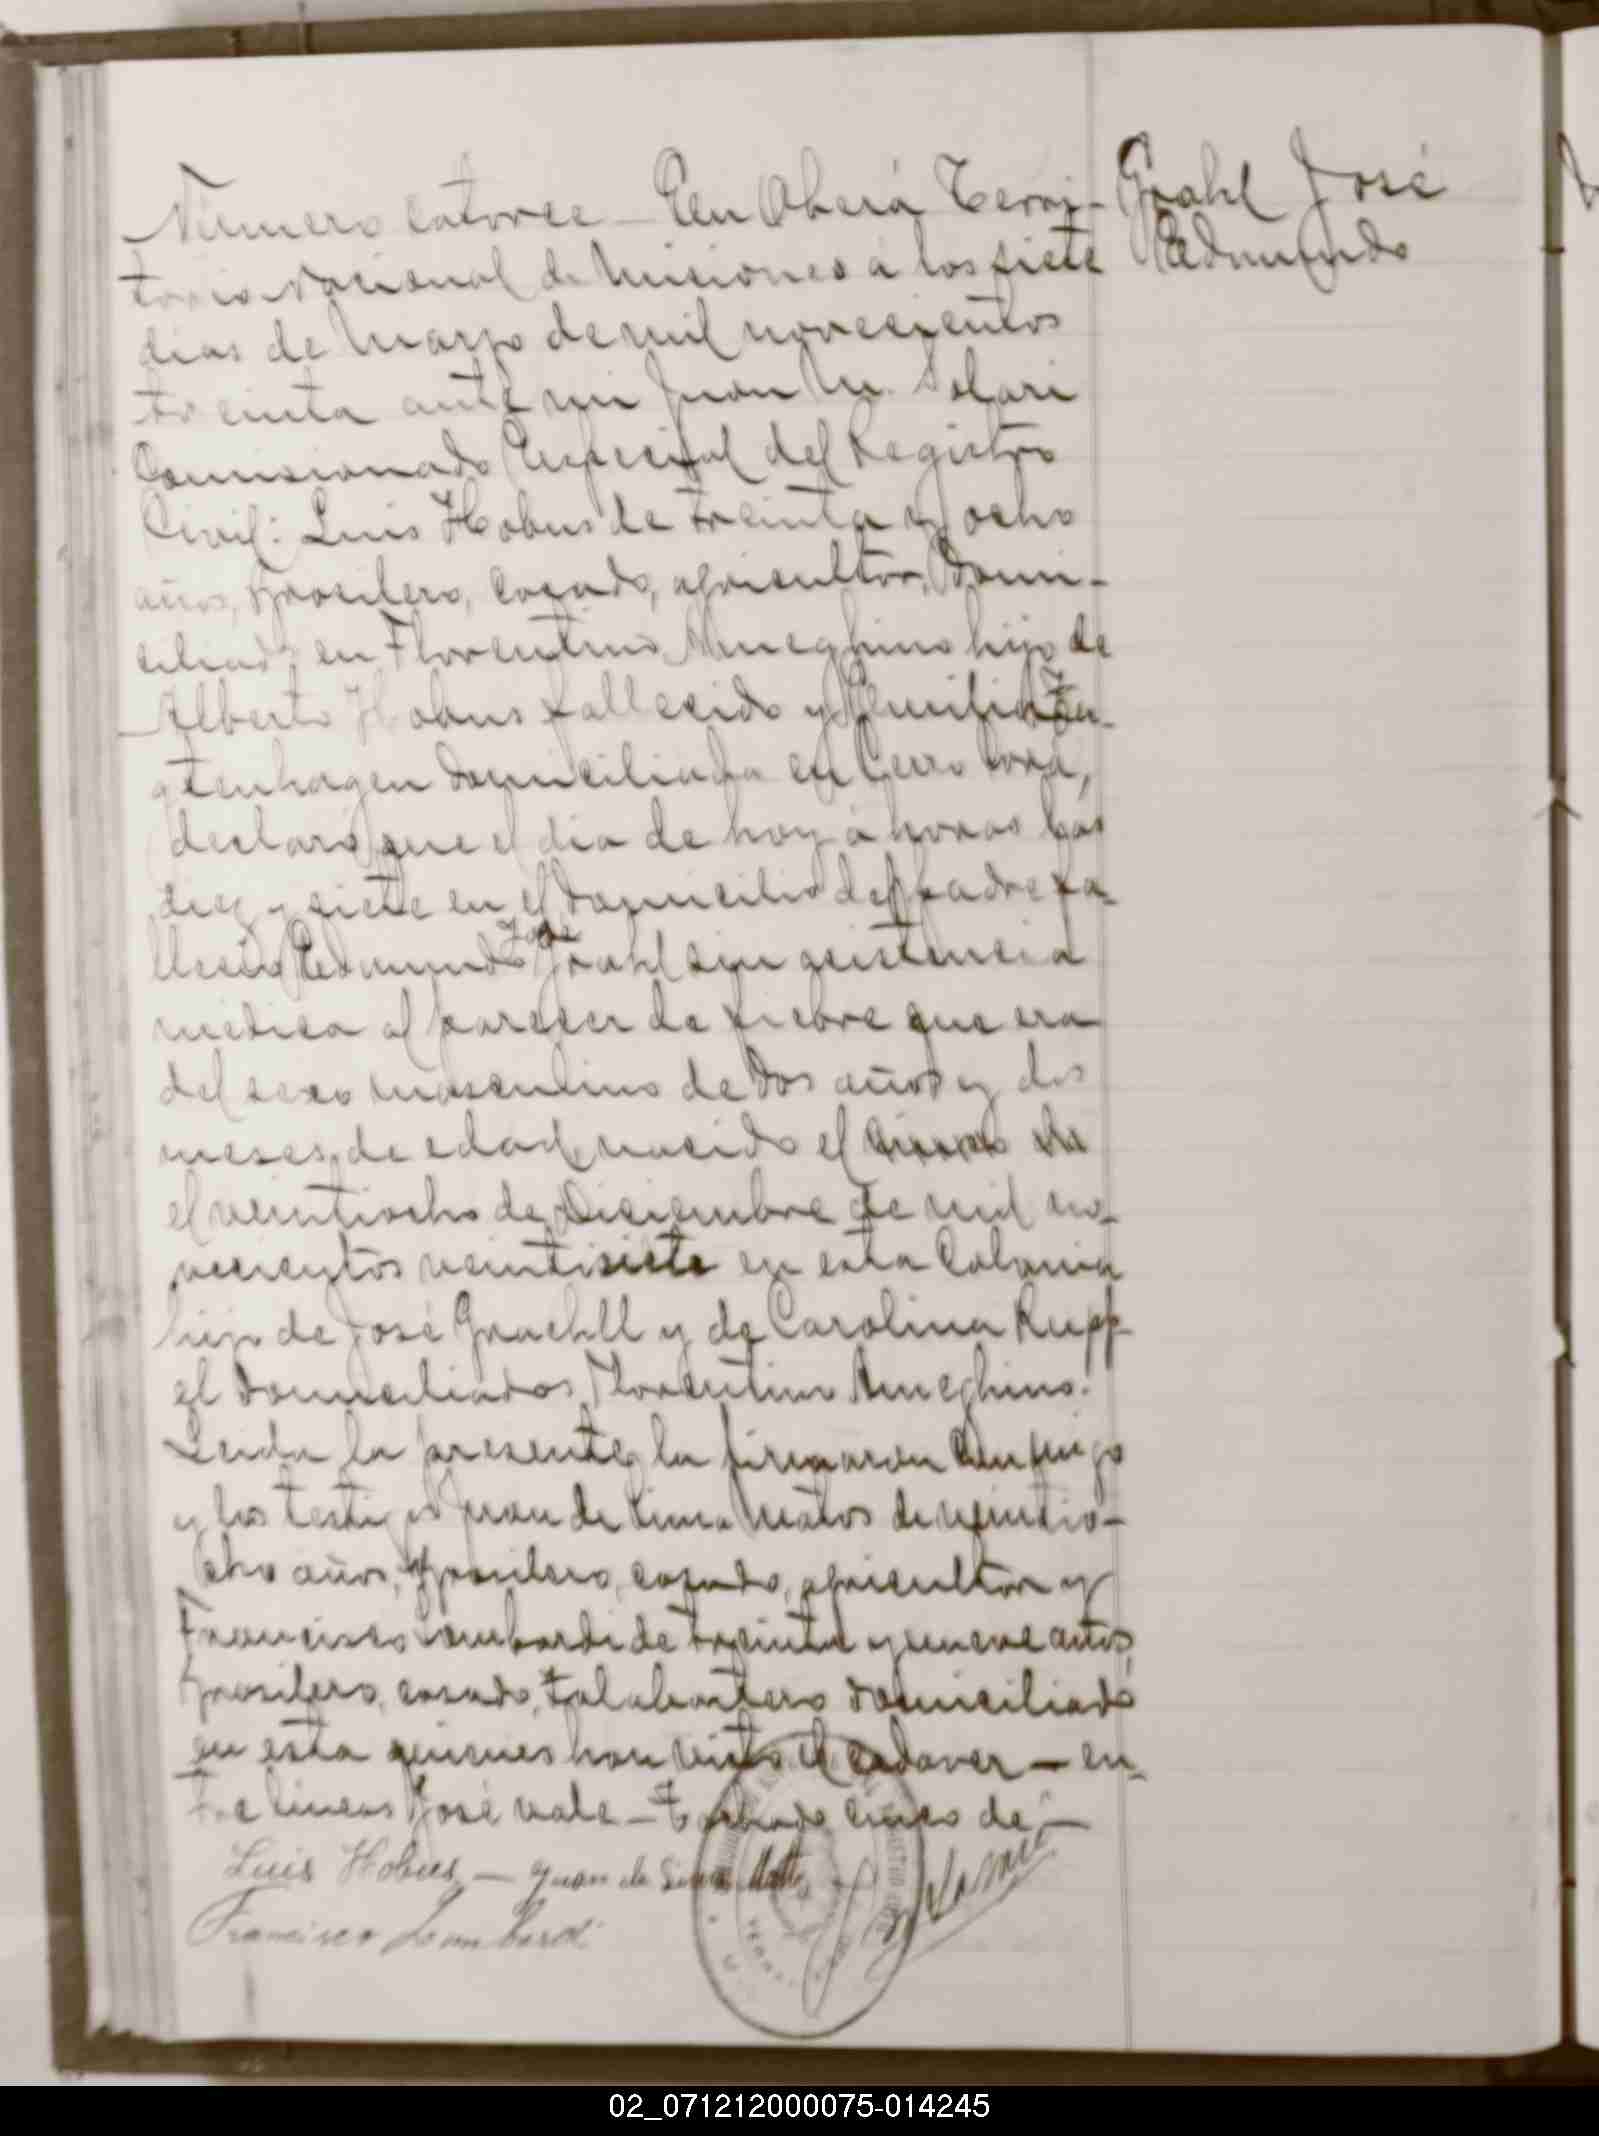 Número catorce – En Oberá Terri-
torio Nacional de Misiones á los siete
dias de Marzo de mil novecientos
treinta ante mi Juan M. Solari
Comisionado Especial del Registro
Civil: Luis Hobus de treinta y ocho
años, brasilero, casado, agricultor, domi-
ciliado en Florentino Ameghino hijo de
Alberto Hobus fallecido y Emilia
gtenhagen domiciliada en Cerro Corá,
declaró que el dia de hoy á horas las
diez y siete en el domicilio del padre fa-
José
lleció Edmundo Grahl sin asistencia
médica al parecer de fiebre que era
del sexo masculino de dos años y dos
meses de edad, nacido el cinco de
el veintiocho de Diciembre de mil no-
vecientos veintisiete en esta Colonia
hijo de José Grachll y de Carolina Rupp-
el domiciliados Florentino Ameghino.
Leida la presente la firmaron conmigo
y los testigos Juan de Lima Matos de veintio-
cho años, brasilero, casado, agricultor y
Francisco Lombardi de treinta y nueve años,
brasilero, casado, talabartero domiciliado
en esta quienes han visto el cadaver – en-
tre lineas José vale – Tachado cinco de –
Luis Hobus – Juan de Lima
Francisco Lombardi
Grahl José
Edmundo
02_071212000075-014245